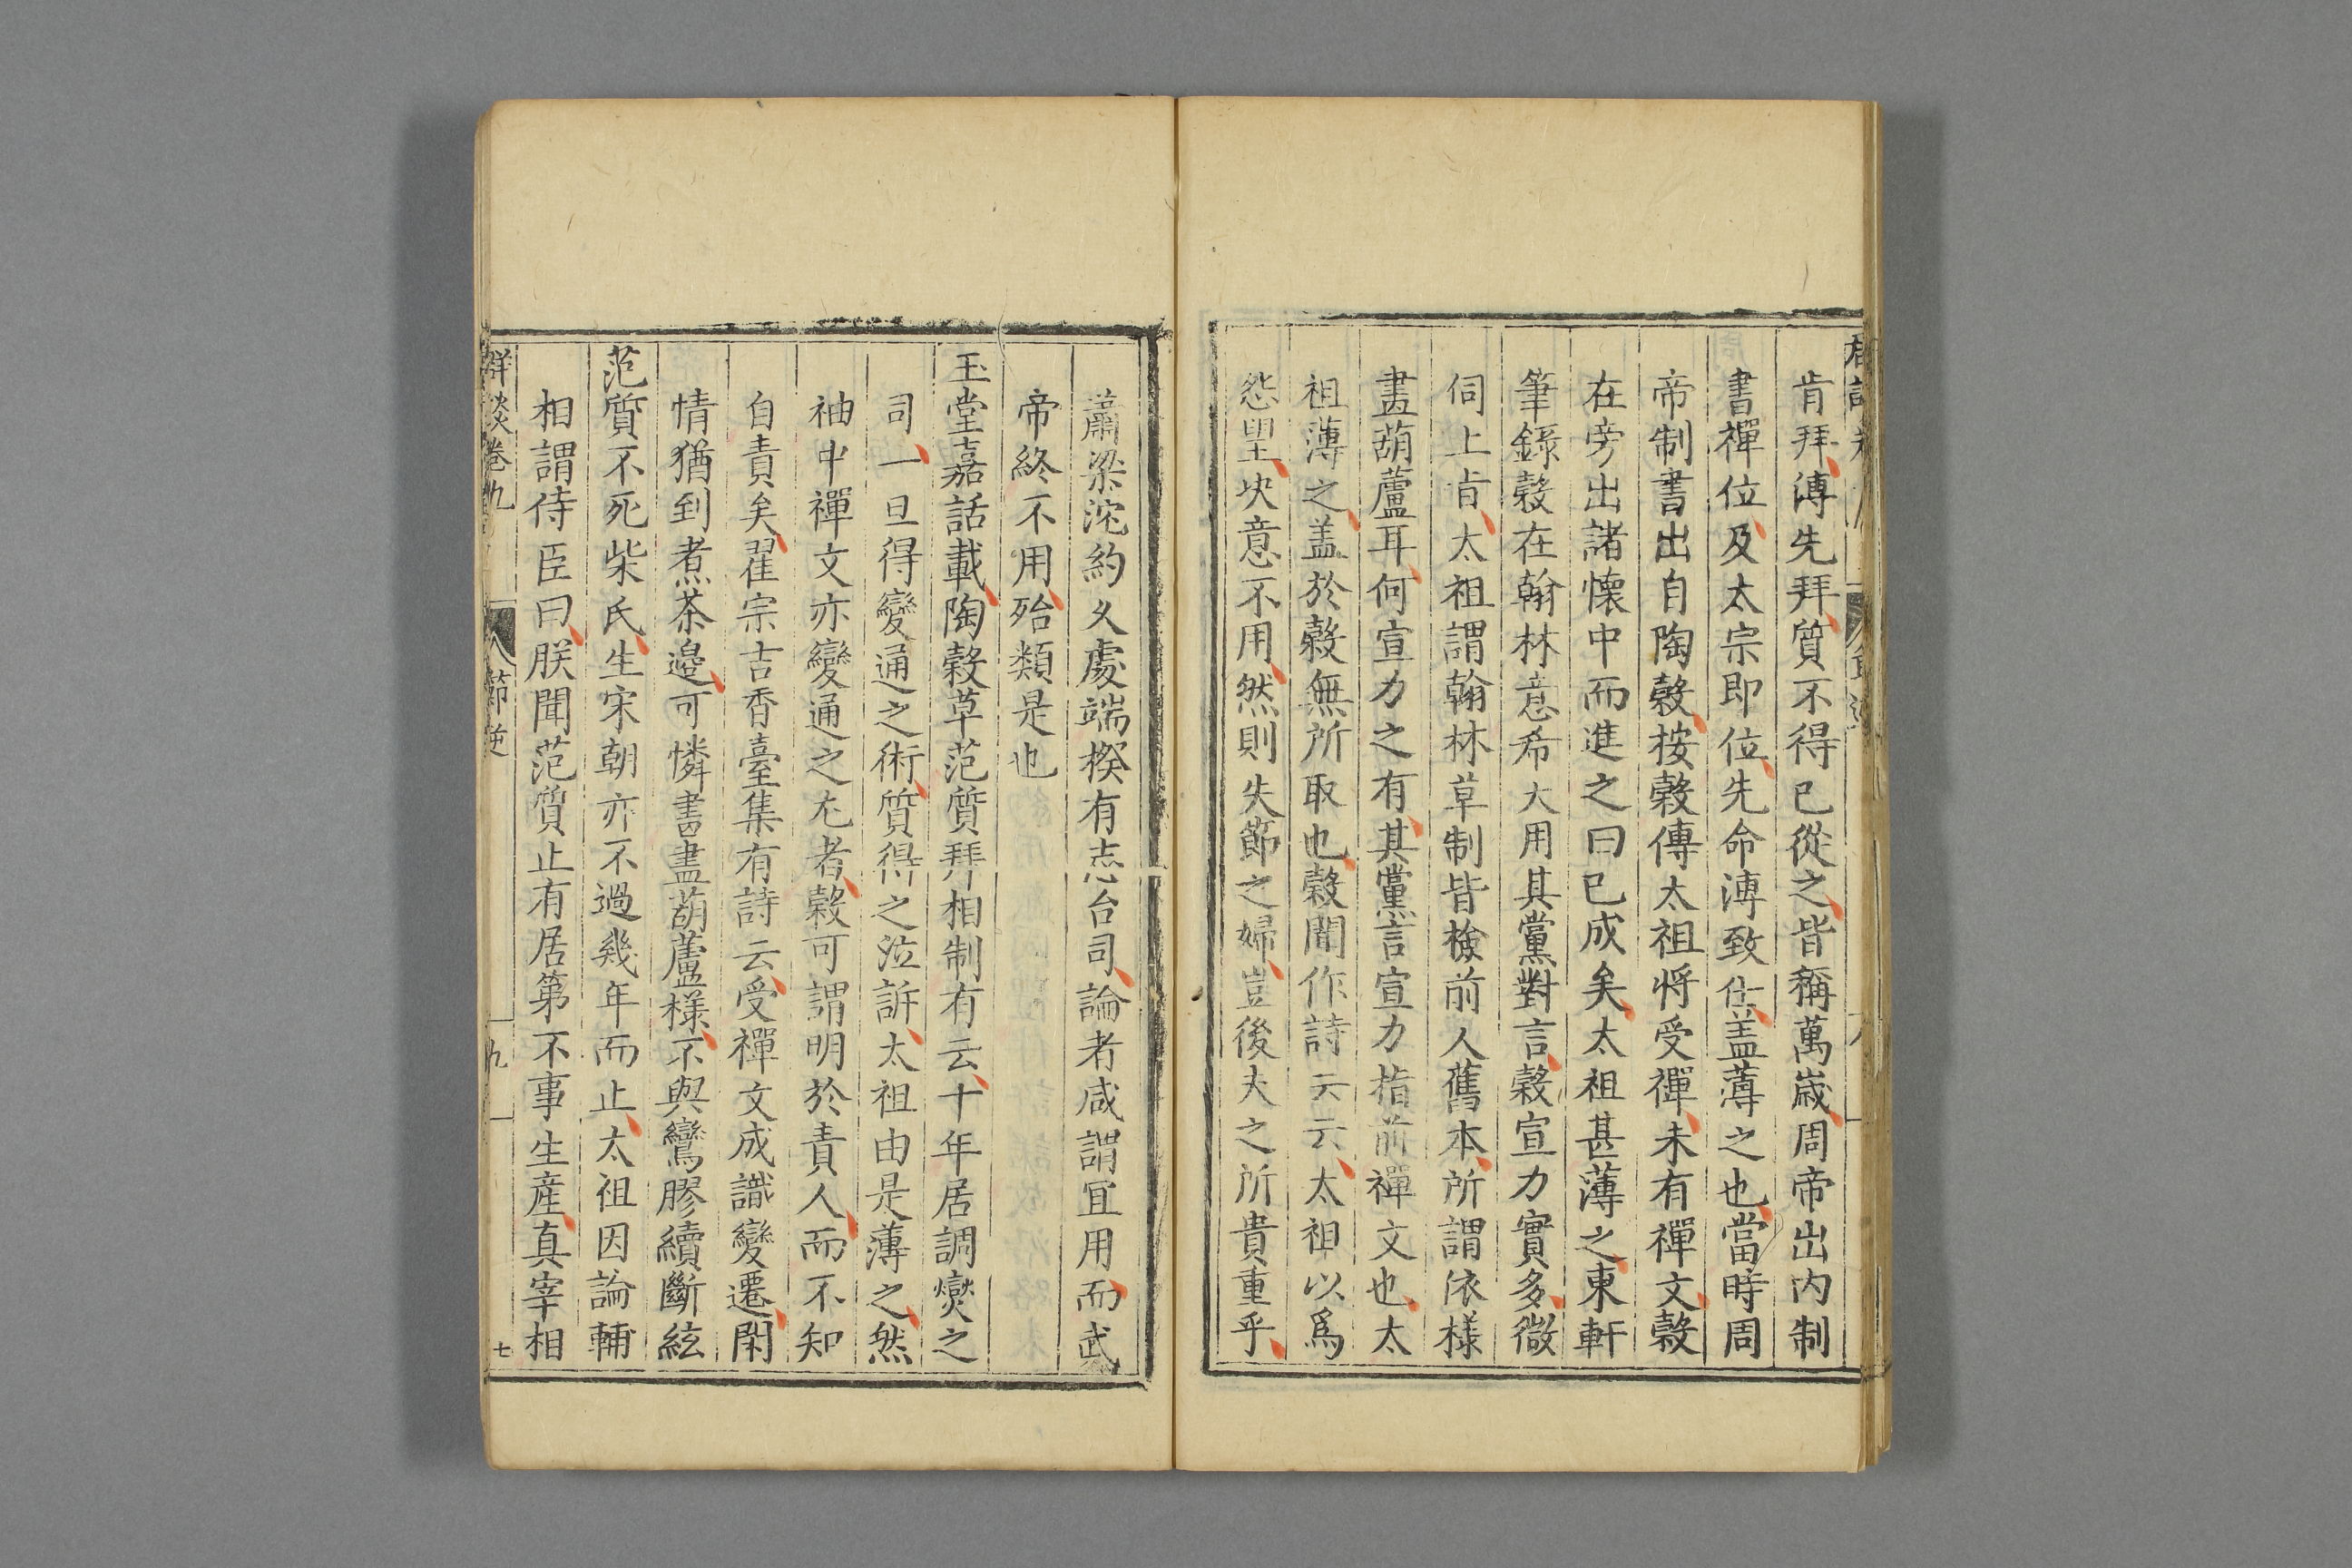 肯拜溥先拜質不得已從之皆稱萬歲周帝出内制
書禪位及太宗即位先命溥致仕盖薄之也當時周
帝制書出自陶穀按穀傳太祖将受禪未有禪文穀
在旁出諸懷中而進之曰已成矣太祖甚薄之東軒
筆錄穀在翰林意希大用其黨對言穀宣力實多微
伺上㫖太祖謂翰林草制皆檢前人舊本所謂依樣
畫葫蘆耳何宣力之有其黨言宣力指前禪文也太
祖薄之盖於穀無所取也穀聞作詩云云太祖以爲
怨望决意不用然則失節之婦豈後夫之所貴重乎
蕭梁沈約久處端揆有志台司論者咸謂冝用而武
帝終不用殆類是也
玉堂嘉話載陶穀草范質拜相制有云十年居調燮之
司一旦得變通之術質得之泣訴太祖由是薄之然
袖中禪文亦變通之尤者穀可謂明於責人而不知
自責矣翟宗吉香臺集有詩云受禪文成識變遷閑
情猶到煮茶邉可憐書畫葫蘆様不與鸞膠續斷絃
范質不死柴氏生宋朝亦不過幾年而止太祖因論輔
相謂侍臣曰朕聞范質止有居第不事生産真宰相
群談卷九 節逆 九 七